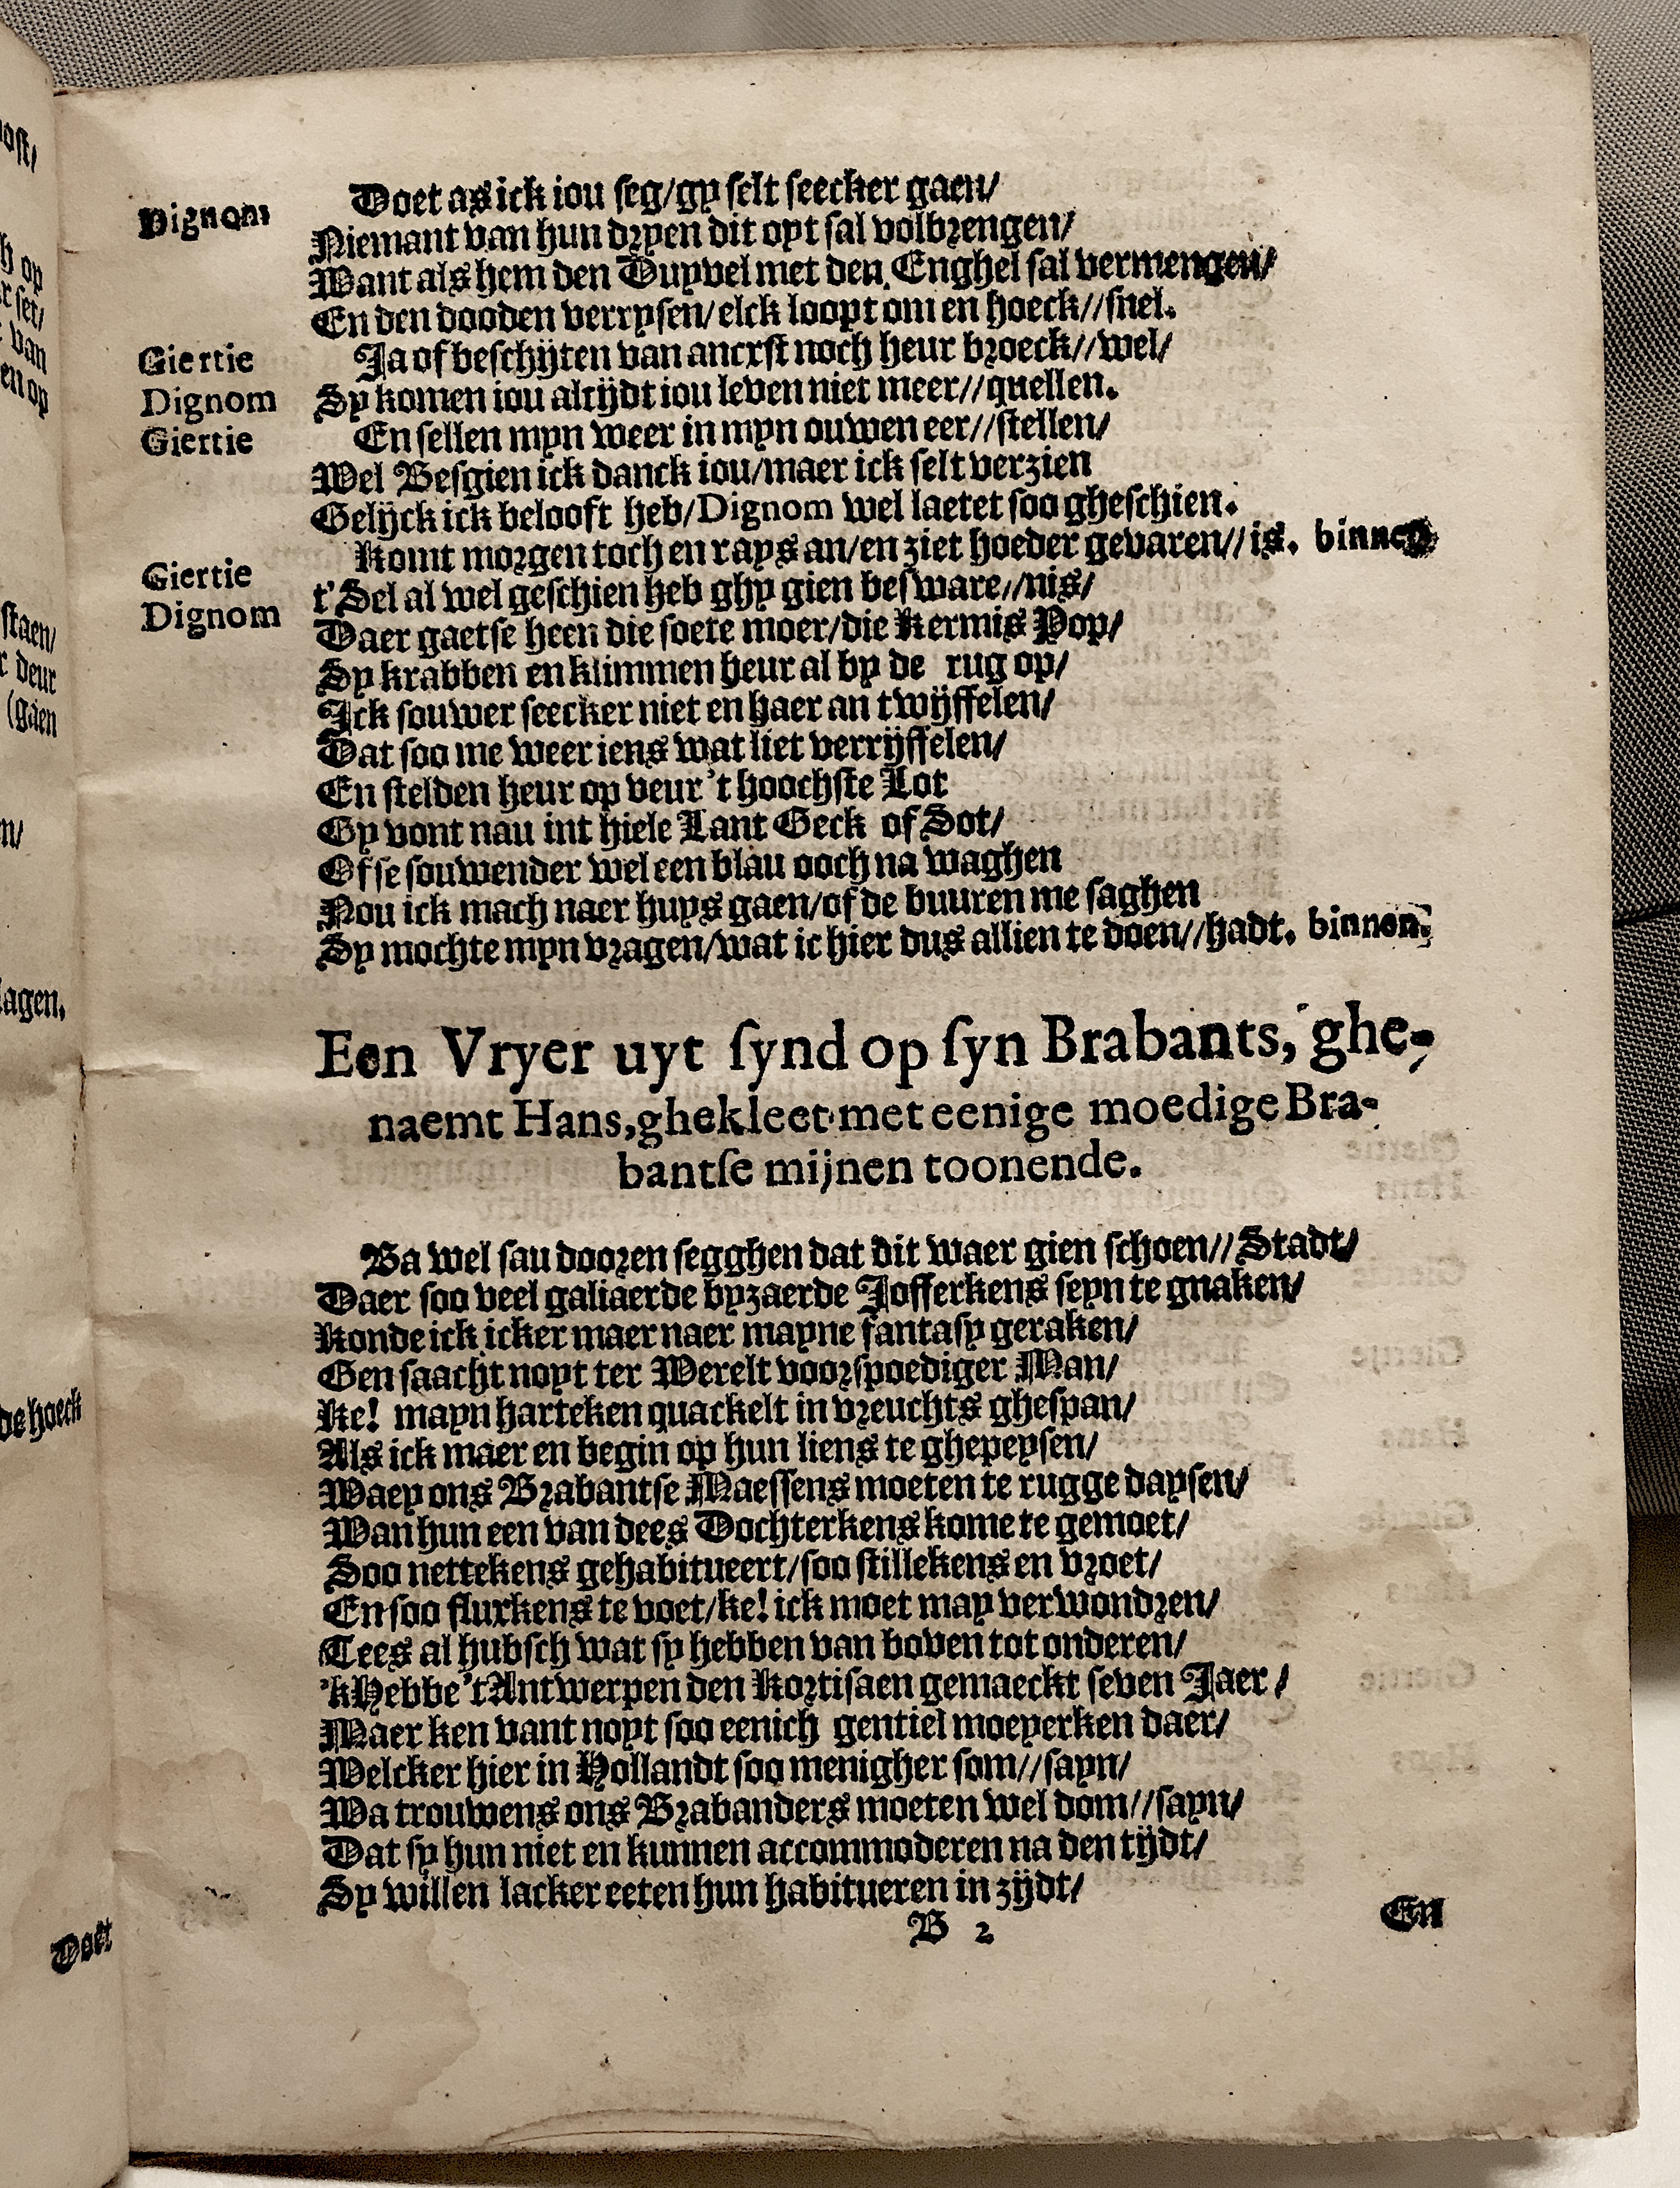 Dignom Doet as ick iou seg/gy selt seecker gaen/
Niemant van hun dryen dit oyt sal volbrengen/
Want als hem den Duyvel met den Enghel sal vermengen/
En den dooden verrysen/elck loopt om en hoeck//snel.
Giertie Ja of beschijten van ancxst noch heur broeck//wel/
Dignom Sy komen iou altijdt iou leven niet meer//quellen.
Giertie En sellen myn weer in myn ouwen eer//stellen/
Wel Besgien ick danck iou/maer ick selt verzien
Gelijck ick belooft heb/Dignom wel laetet soo gheschien.
Giertie Komt morgen toch en rays an/en ziet hoeder gevaren//is. binnen
Dignom t'Sel al wel geschien heb ghy gien besware//nis/
Daer gaetse heen die soete moer/die Kermis Pop/
Sy krabben en klimmen heur al by de rug op/
Ick souwer seecker niet en haer an twijffelen/
Dat soo me weer iens wat liet verrijffelen/
En stelden heur op veur 't hoochste Lot
Gy vont nau int hiele Lant Geck of Sot/
Of se souwender wel een blau ooch na waghen
Nou ick mach naer huys gaen/of de buuren me saghen
Sy mochte myn vragen/wat ic hier dus allien te doen//hadt. binnen.
Een Vryer uyt synd op syn Brabants, ghe-
naemt Hans, ghekleet met eenige moedige Bra-
bantse mijnen toonende.
Ba wel sau dooren segghen dat dit waer gien schoen//Stadt/
Daer soo veel galiaerde byzaerde Jofferkens seyn te gnaken/
Konde ick icker maer naer mayne fantasy geraken/
Gen saacht noyt ter Werelt voorspoediger Man/
Ke! mayn harteken quackelt in vreuchts ghespan/
Als ick maer en begin op hun liens te ghepeysen/
Waey ons Brabantse Maessens moeten te rugge daysen/
Wan hun een van dees Dochterkens kome te gemoet/
Soo nettekens gehabitueert/soo stillekens en vroet/
En soo flurkens te voet/ke! ick moet may verwondren/
Tees al hubsch wat sy hebben van boven tot onderen/
'kHebbe 't Antwerpen den Kortisaen gemaeckt seven Jaer/
Maer ken vant noyt soo eenich gentiel moeyerken daer/
Welcker hier in Hollandt soo menigher som//sayn/
Wa trouwens ons Brabanders moeten wel dom//sayn/
Dat sy hun niet en kunnen accommoderen na den tijdt/
Sy willen lacker eeten hun habitueren in zijdt/
B 2
En